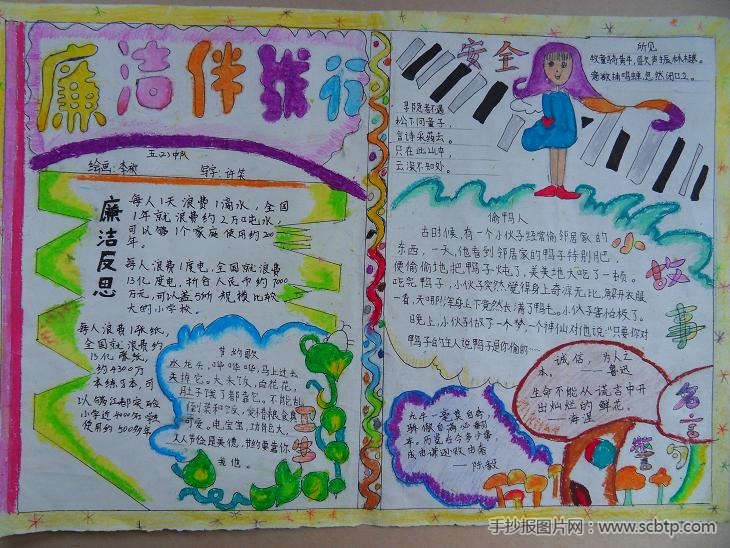 廉洁伴我行
五(2)中队
绘画:李敏
写字:许笑
廉洁反思
每人1天浪费1滴水,全国
1年就浪费约2万口吨水,
可以够1个家庭使用约200
年。
每人浪费1度电,全国就浪费
13亿度电,折合人民币约7000
万元,可以盖5所规模比较
大的小学校。
每人浪费1张纸,
全国就浪费约
13亿张纸,
约4300万
本练习本,可
以够江都实验
小学近4000万学生
使用约500多年
节约歌
水龙头,哗哗哗,马上过去
关掉它。大米饭,白花花,
肚子饿了都靠它,不能乱
倒菜和饭,爱惜粮食真
可爱。电宝宝,功能大,
人人节俭是美德,节约要靠你
我他。
安全
所见
牧童骑黄牛,歌声振林樾。
意欲捕鸣蝉,忽然闭口立。
寻隐者不遇
松下问童子,
言诗采药去。
只在此山中,
云深不知处。
小故事
偷鸭人
古时候,有一个小伙子经常偷邻居家的
东西,一天,他看到邻居家的鸭子特别肥,
便偷偷地把鸭子炖了,美美地大吃了一顿。
吃完鸭子,小伙子突然觉得身上奇痒无比,解开衣服
一看,天啊!浑身上下竟然长满了鸭毛。小伙子害怕极了。
晚上,小伙子做了一个梦,一个神仙对他说:“只要你对
鸭子的主人说鸭子是你偷的……
名言警句
诚信,为人之
本。——鲁迅
生命不能从谎言中开
出灿烂的鲜花。
——海涅
九牛一毫莫自夸,
骄傲自满必翻
车。历览古今多少事,
成由谦逊败由奢。
——陈毅
手抄报图片网:www.scbtp.com